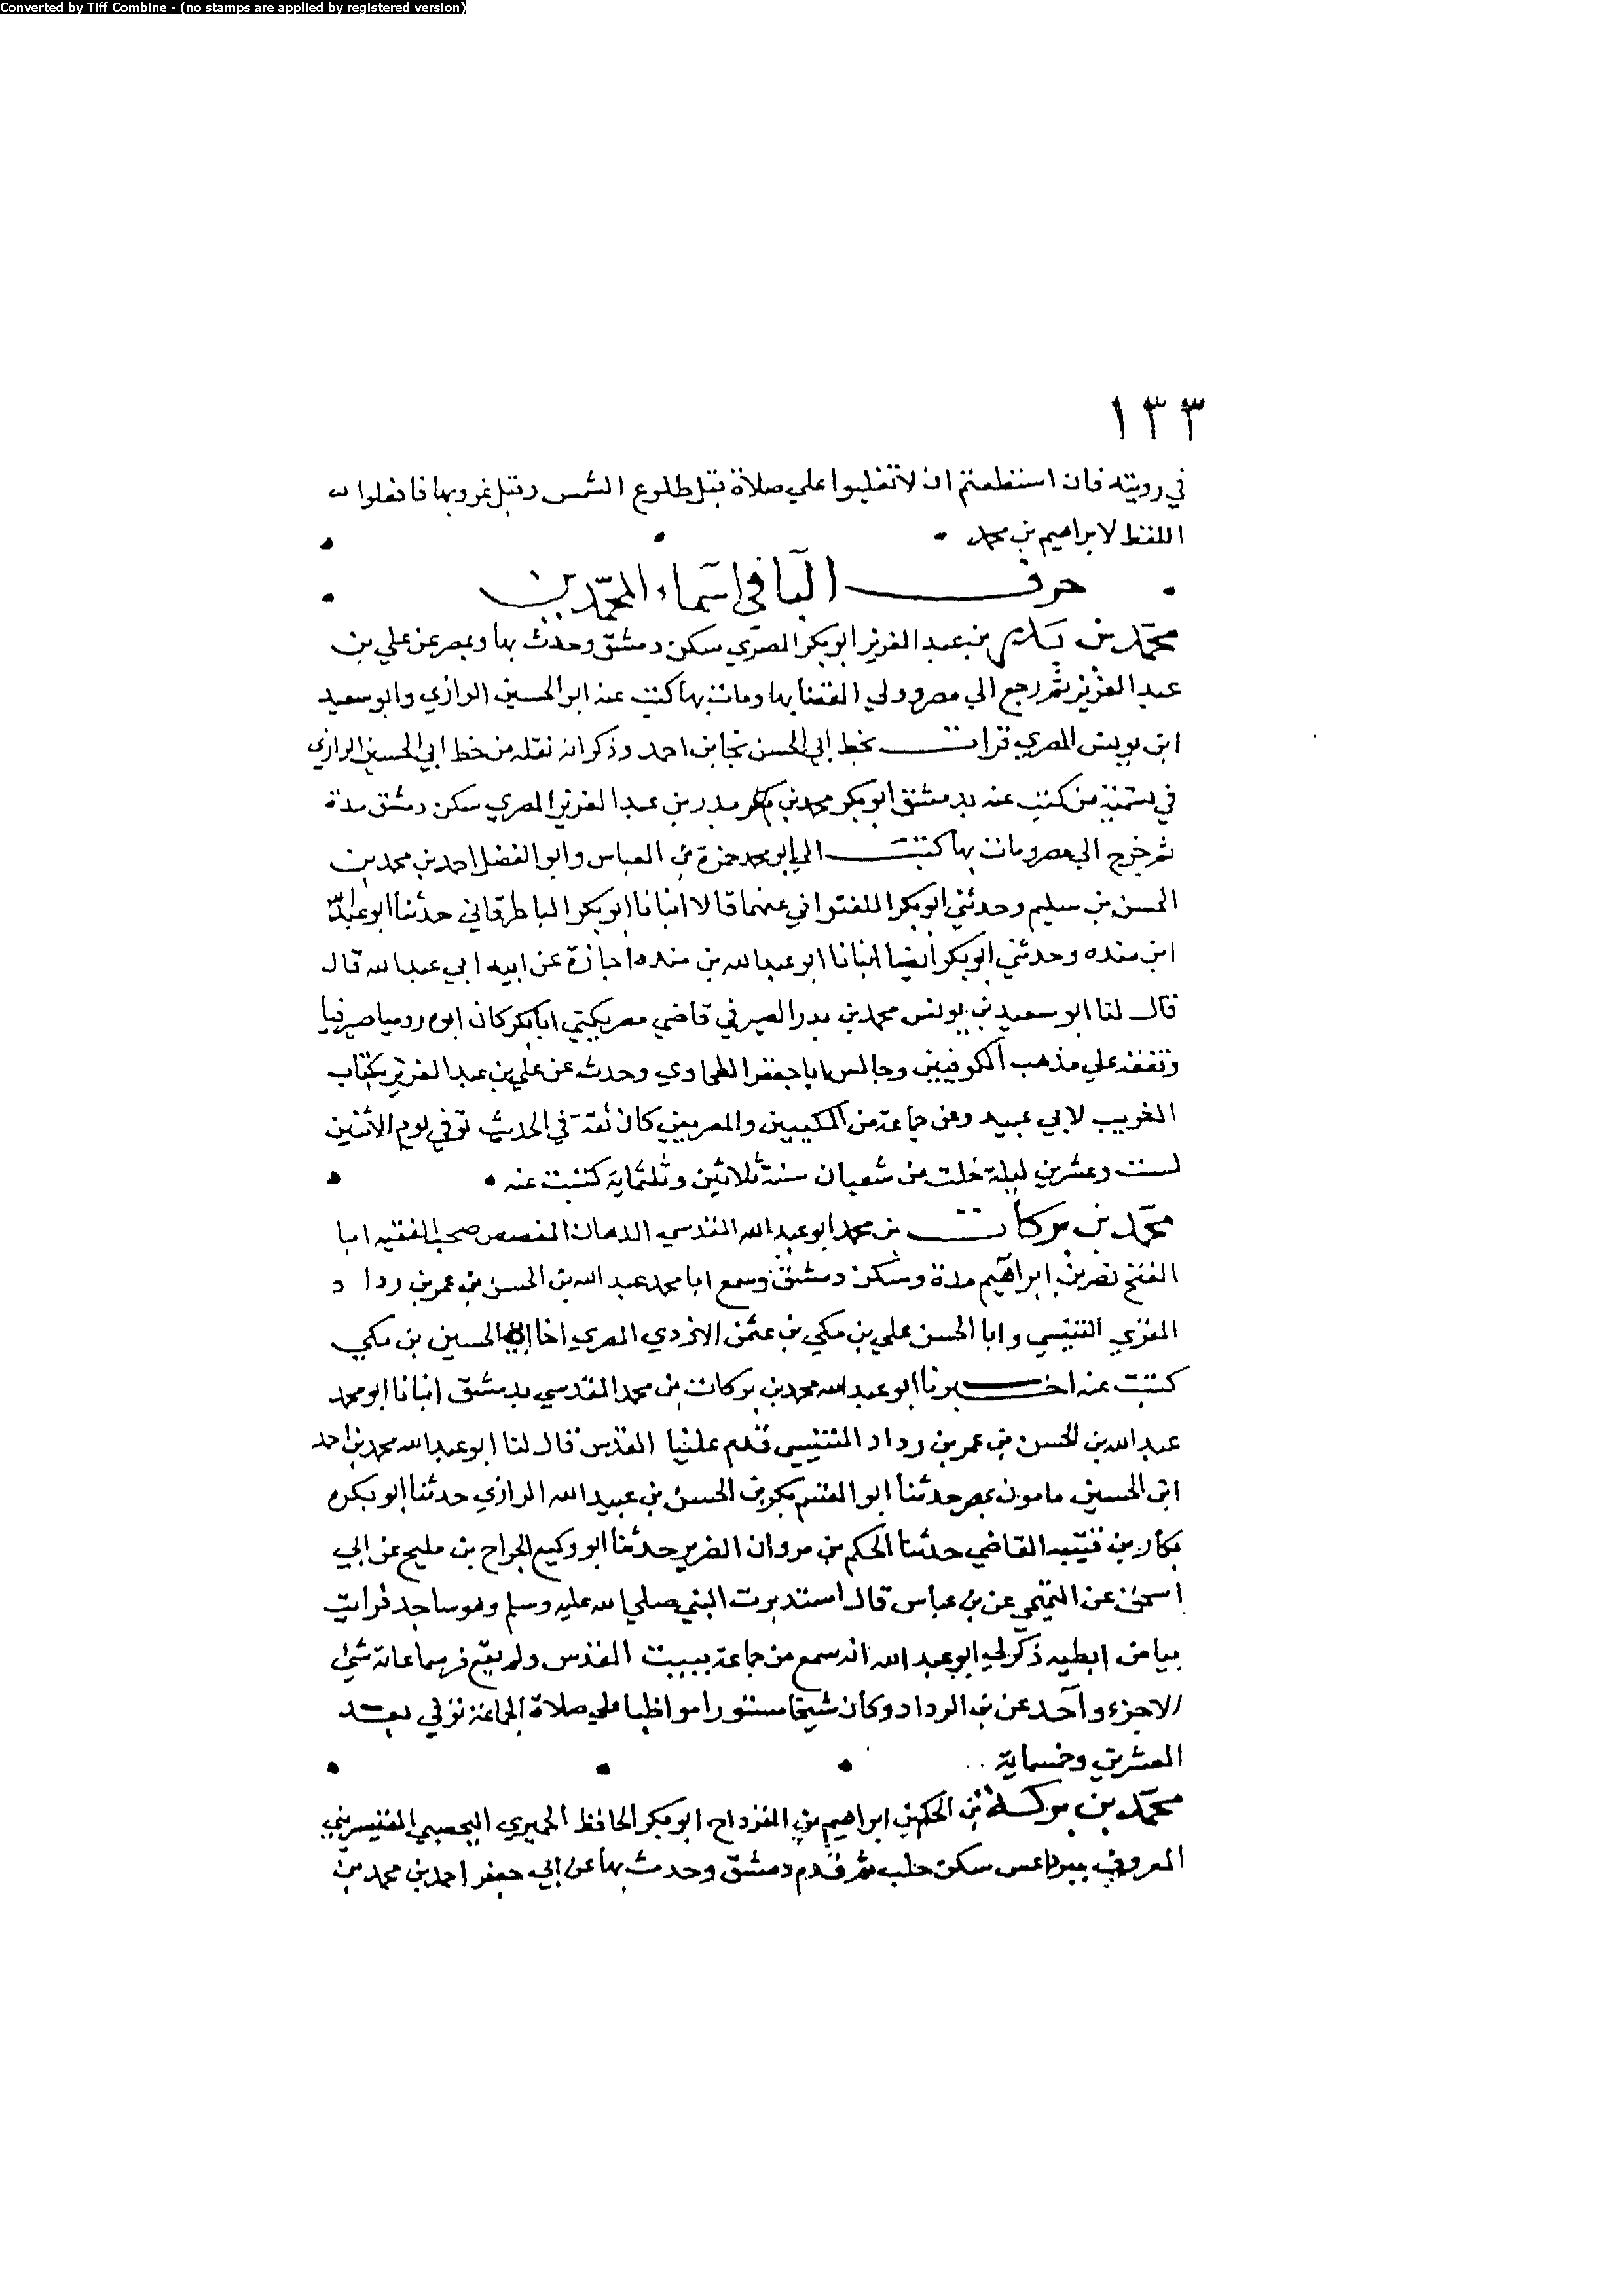 Converted by Tiff Combine - (no stamps are applied by registered version)
١٣٣
في رويته فان استطعتم ان لا تغلبوا علي صلاة قبل طلوع الشمس وقبل غروبها فافعلوا
اللفظ لابراهيم بن محمد
حرف البا في اسماء المحمدين
محمد بن بدر بن عبد العزيز ابو بكر المصري سكن دمشق وحدث بها وبمصر عن علي بن
عبد العزيز ثم رجع الي مصر وولي القضا بها ومات بها كتب عنه ابو الحسين الرازي وابو سعيد
ابن يونس المصري قرات بخط ابي الحسن نجا بن احمد وذكر انه نقله من خط ابي الحسين الرازي
في تسمية من كتب عنه بدمشق ابو بكر محمد بن بدر بن عبد العزيز المصري سكن دمشق مدة
ثم خرج الي مصر ومات بها كتب الي ابو محمد حمزة بن العباس وابو الفضل احمد بن محمد بن
الحسن بن سليم وحدثني ابو بكر اللفتواني عنهما قالا انبانا ابو بكر الباطرقاني حدثنا ابو عبد الله
ابن منده وحدثني ابو بكر ايضا انبانا ابو عبد الله بن منده اجازة عن ابيه ابي عبد الله قال
قال لنا ابو سعيد بن يونس محمد بن بدر الصيرفي قاضي مصر يكني ابا بكر كان ابوه روميا صيرفيا
وتفقه علي مذهب الكوفيين وجالس ابا جعفر الطحاوي وحدث عن علي بن عبد العزيز بكتاب
الغريب لابي عبيد وعن جماعة من المكيين والمصريين كان ثقة في الحديث توفي يوم الاثنين
لست وعشرين ليلة خلت من شعبان سنة ثلاثين وثلثماية كتبت عنه
محمد بن بركات بن محمد ابو عبد الله المقدسي الدهان المقصص صحب الفقيه ابا
الفتح نصر بن ابراهيم مدة وسكن دمشق وسمع ابا محمد عبد الله بن الحسن بن عمر بن رداد
المقري التنيسي وابا الحسن علي بن مكي بن عثمن الازدي المصري اخا ابي الحسين بن مكي
كتبت عنه اخبرنا ابو عبد الله محمد بن بركات بن محمد المقدسي بدمشق انبانا ابو محمد
عبد الله بن الحسن بن عمر بن رداد التنيسي قدم علينا القدس قال لنا ابو عبد الله محمد بن احمد
ابن الحسين مامون بمصر حدثنا ابو القسم بكر بن الحسن بن عبيد الله الرازي حدثنا ابو بكره
بكار بن قتيبه القاضي حدثنا الحكم بن مروان الضرير حدثنا ابو وكيع الجراح بن مليح عن ابي
اسحق عن التيمي عن بن عباس قال استدبرت النبي صلي الله عليه وسلم وهو ساجد فرايت
بياض ابطيه ذكر لي ابو عبد الله انه سمع من جماعة ببيت المقدس ولم يقع من سماعاته شئ
الا جزء واحد عن بن الرداد وكان شيخا مستورا مواظبا علي صلاة الجماعة توفي بعد
العشرين وخمسماية
محمد بن بركة بن الحكم بن ابراهيم بن الفرداح ابو بكر الحافظ الحميري اليحصبي القنسريني
المعروف ببرداعس سكن حلب ثم قدم دمشق وحدث بها عن ابي جعفر احمد بن محمد بن